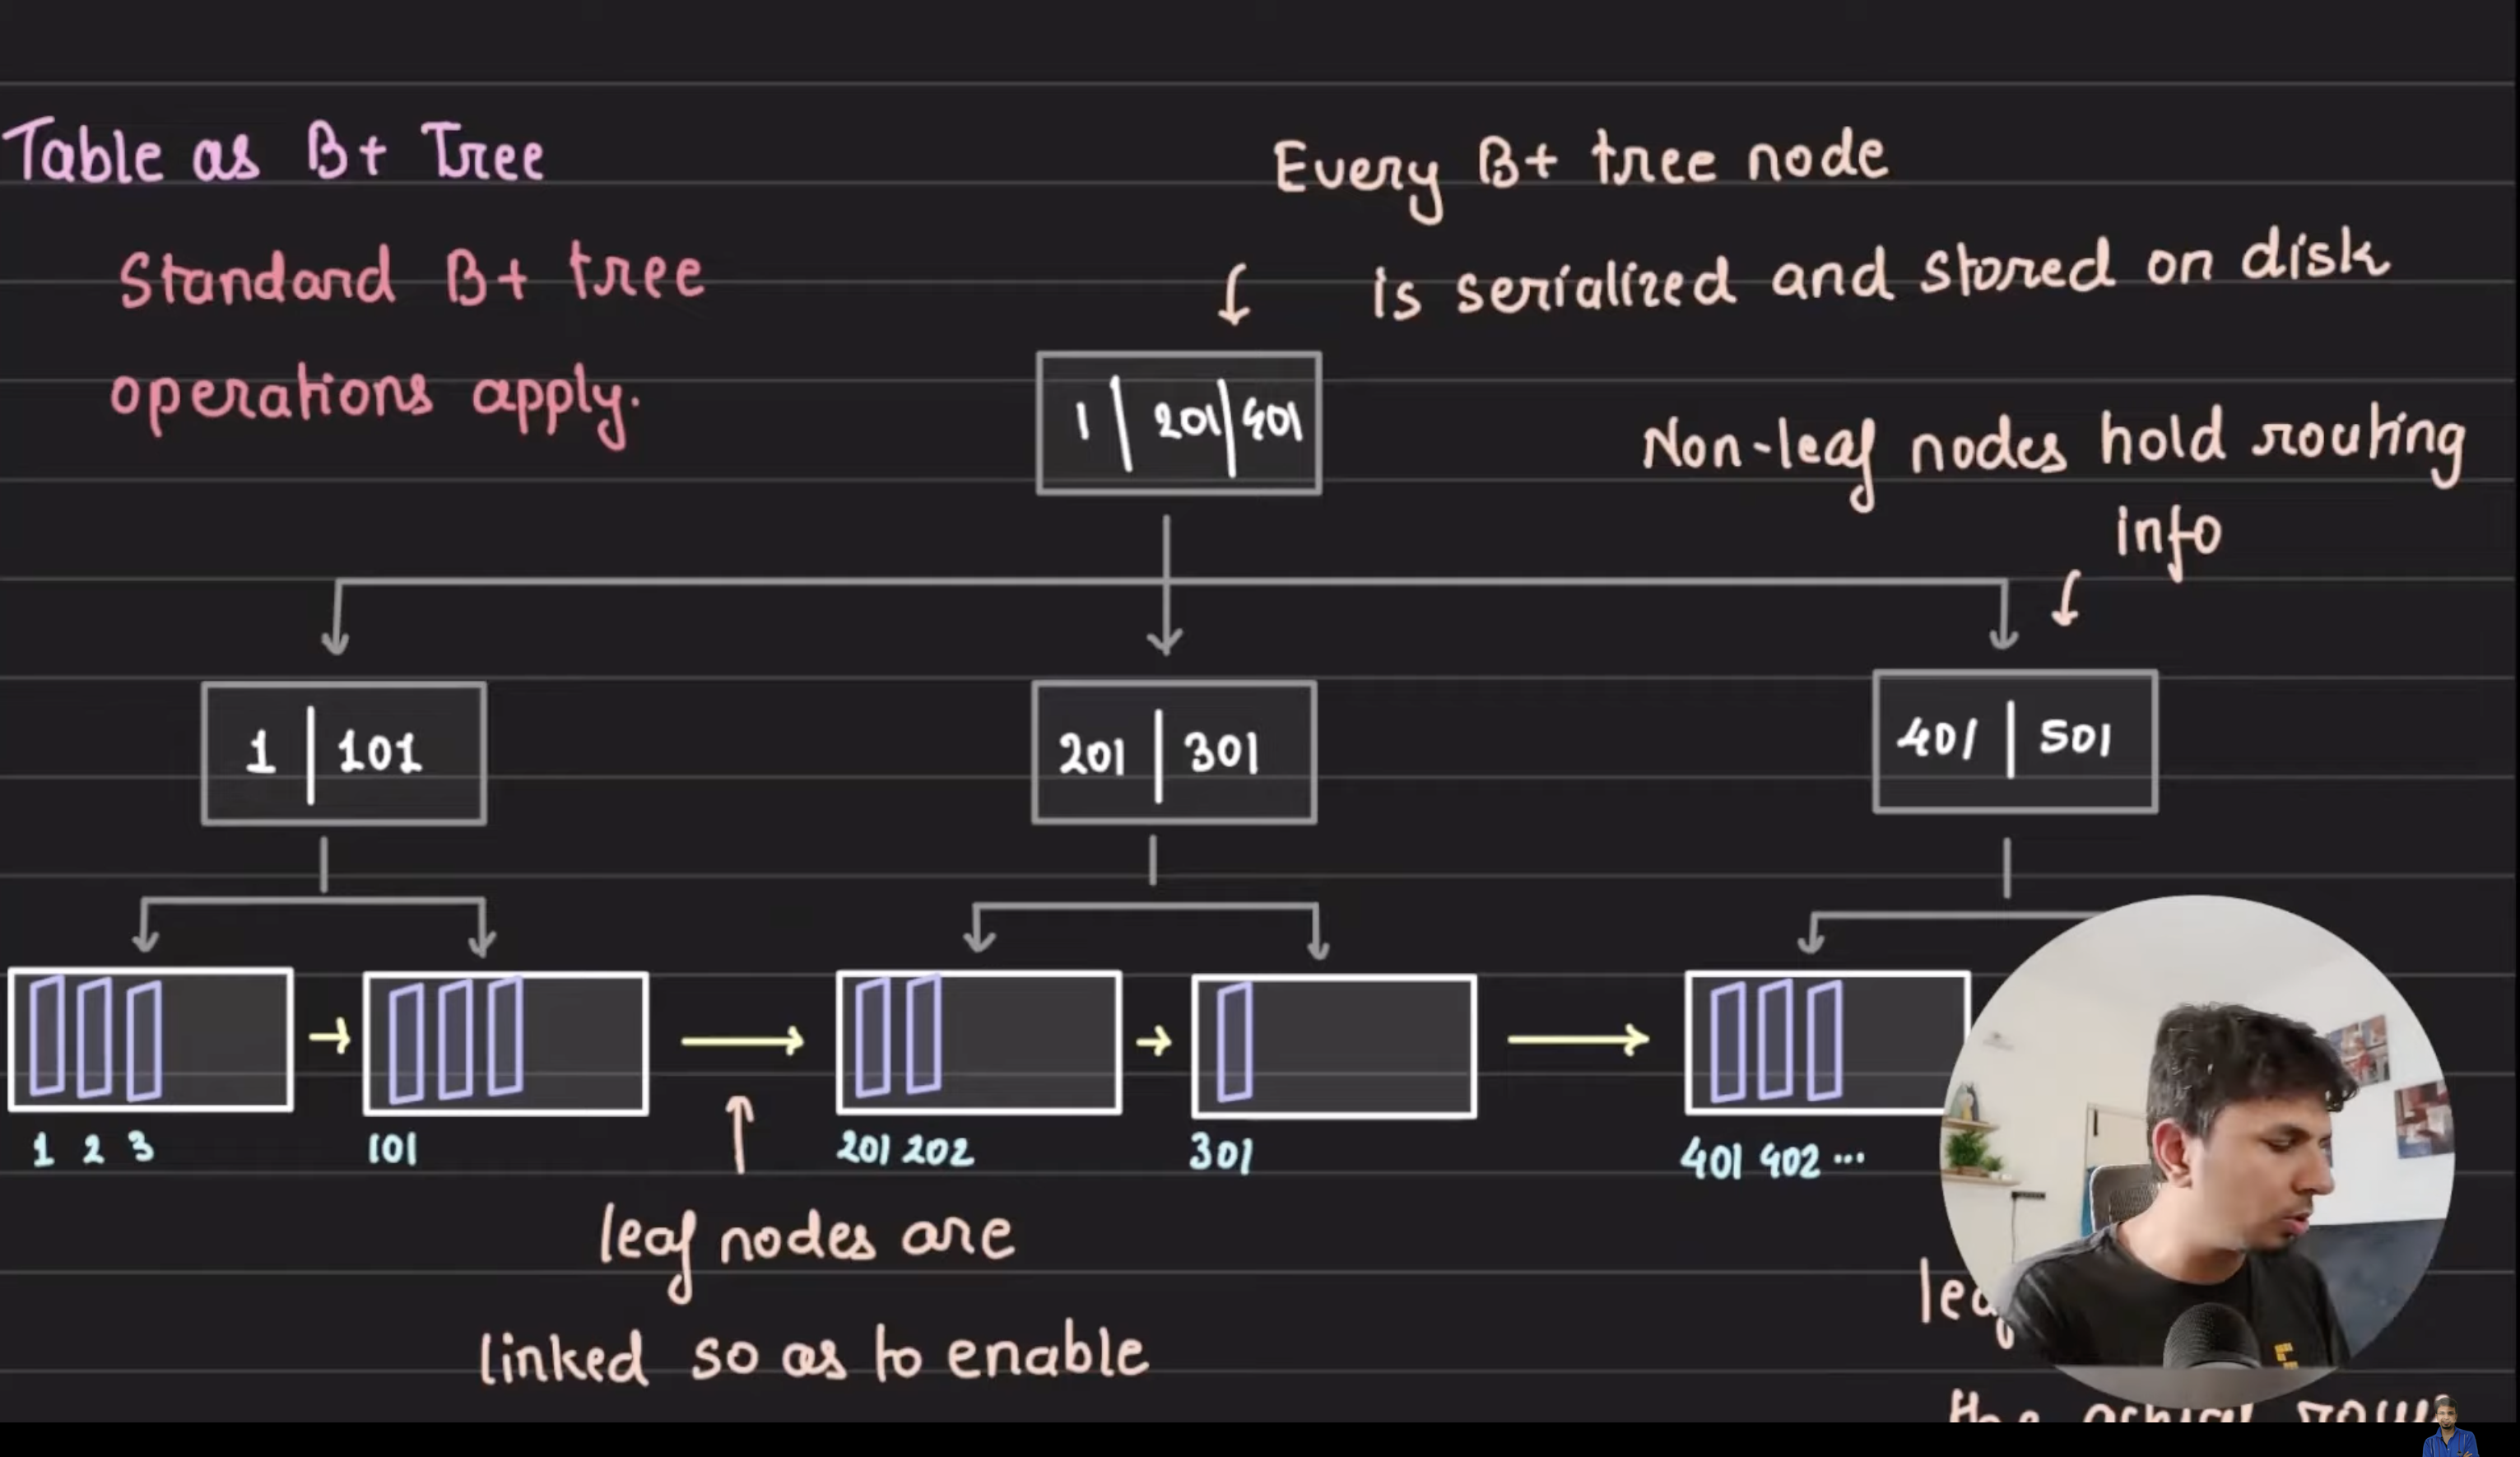 Table as B+ Tree
Standard B+ tree
operations apply.
Every B+ tree node
is serialized and stored on disk
1 | 201 | 401
Non-leaf nodes hold routing
info
1 | 101
201 | 301
401 | 501
1 2 3
101
201 202
301
401 402 ...
leaf nodes are
linked so as to enable